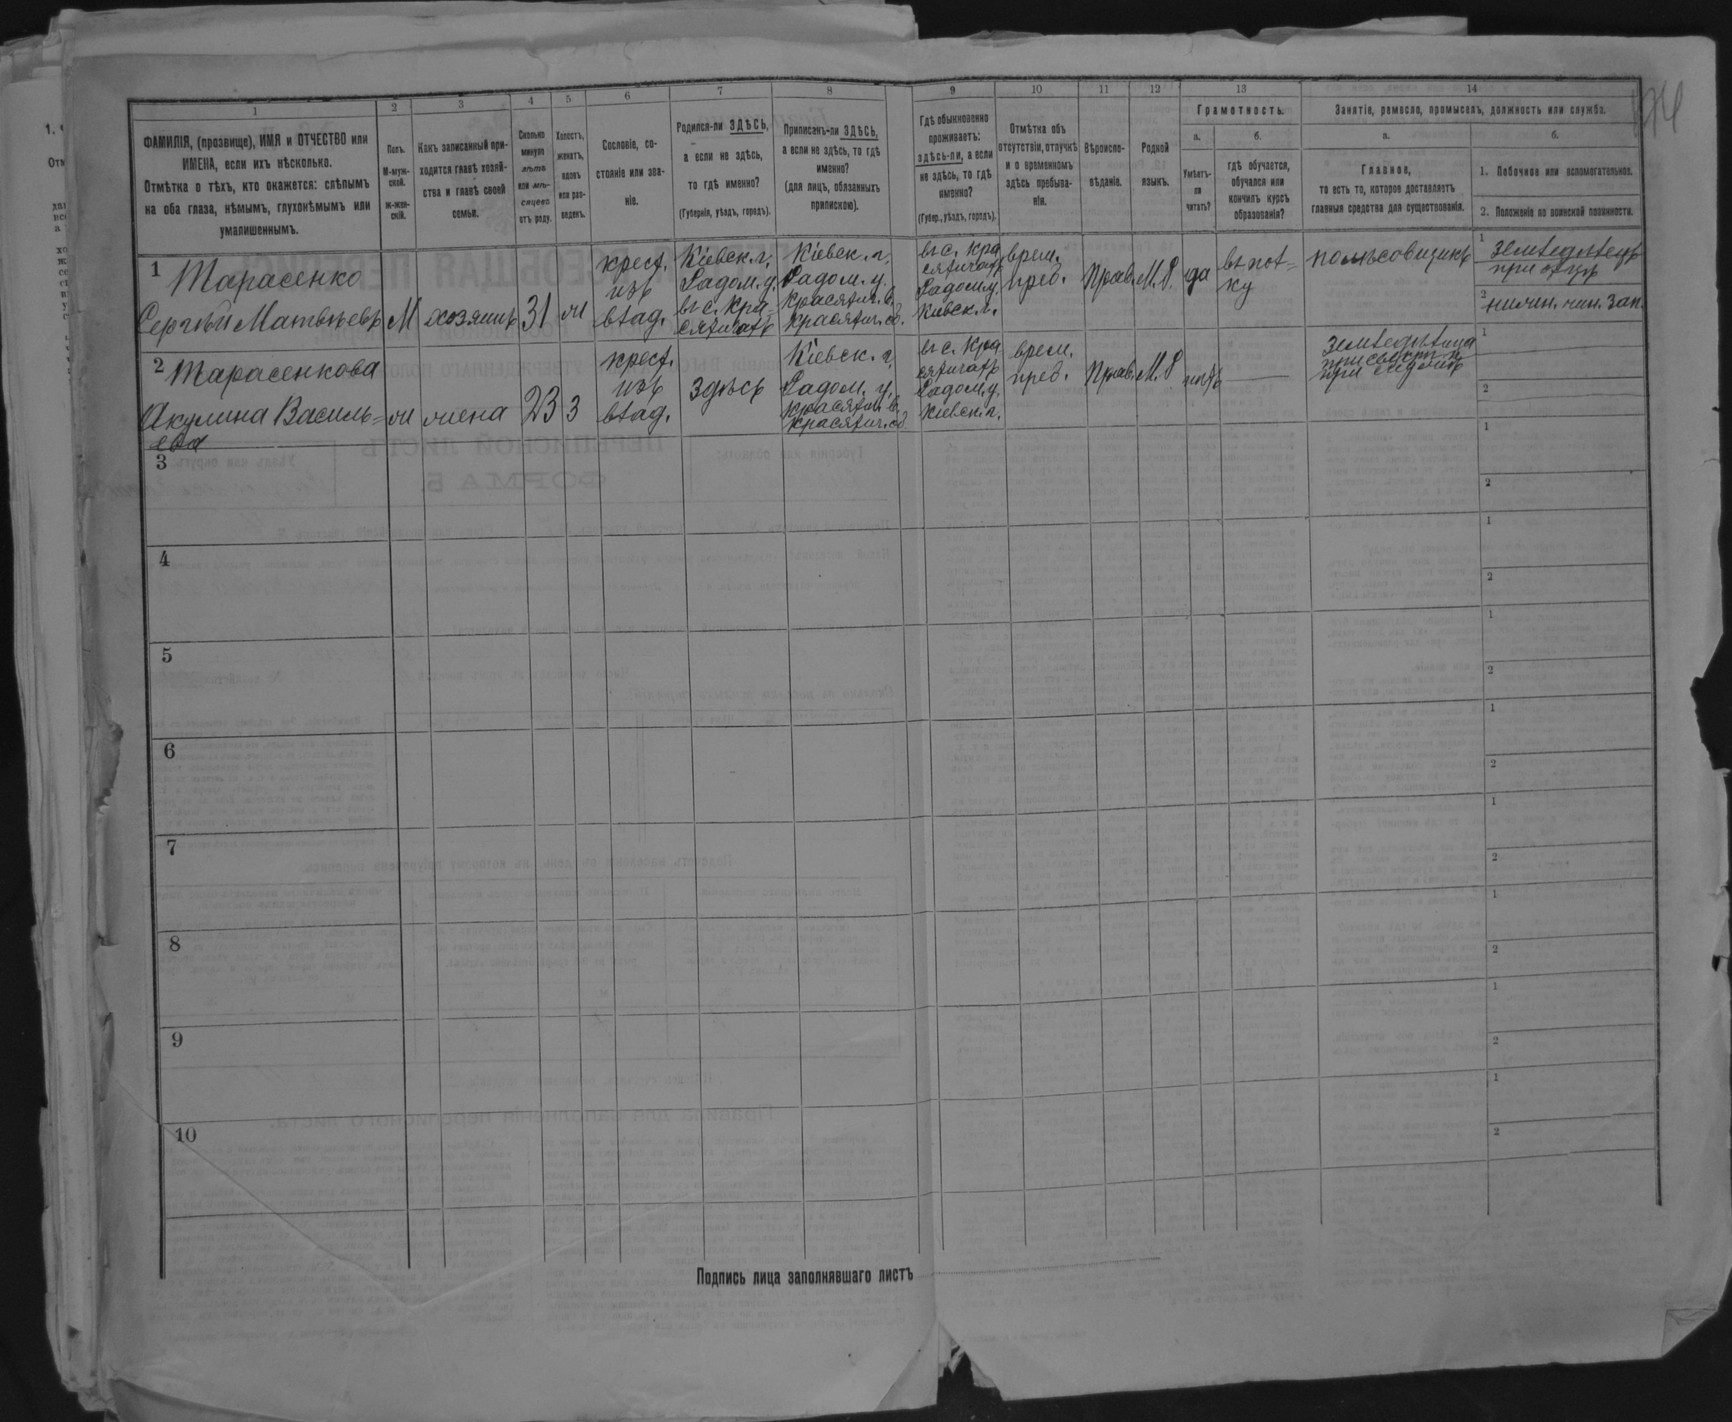 1
2
3
4
5
6
7
8
9
10
11
12
13
14
ФАМИЛІЯ, (прозвище), ИМЯ и ОТЧЕСТВО или
ИМЕНА, если ихъ нѣсколько.
Отмѣтка о тѣхъ, кто окажется: слѣпымъ
на оба глаза, нѣмымъ, глухонѣмымъ или
умалишеннымъ.
Полъ.
М-муж-
ской.
Ж-жен-
скій.
Какъ записанный при-
ходится главѣ хозяй-
ства и главѣ своей
семьи.
Сколько
минуло
лѣтъ
или мѣ-
сяцевъ
отъ роду.
Холостъ,
женатъ,
вдовъ
или раз-
веденъ.
Сословіе, со-
стояніе или зва-
ніе.
Родился-ли ЗДѢСЬ,
а если не здѣсь,
то гдѣ именно?
(Губернія, уѣздъ, городъ).
Приписанъ-ли ЗДѢСЬ,
а если не здѣсь, то гдѣ
именно?
(для лицъ, обязанныхъ
припискою).
Гдѣ обыкновенно
проживаетъ:
здѣсь-ли, а если
не здѣсь, то гдѣ
именно?
(Губер., уѣздъ, городъ).
Отмѣтка объ
отсутствіи, отлучкѣ
и о временномъ
здѣсь пребыва-
ніи.
Вѣроиспо-
вѣданіе.
Родной
языкъ.
Грамотность.
а.
б.
Умѣетъ-
ли
читать?
гдѣ обучается,
обучался или
кончилъ курсъ
образованія?
Занятіе, ремесло, промыселъ, должность или служба.
а.
б.
Главное,
то есть то, которое доставляетъ
главныя средства для существованія.
1. Побочное или вспомогательное.
2. Положеніе по воинской повинности.
1 Тарасенко
Сергѣй Матвѣевъ
М
хозяинъ
31
ж
крест.
изъ
влад.
Кіевск. г.
Радом. у.
въ с. Кра-
сятичахъ
Кіевск. г.
Радом. у.
Красятич. в.
Красятич. об.
въ с. Кра
сятичахъ
Радом. у.
Кіевск. г.
врем.
преб.
Прав.
М. Р.
да
въ пол-
ку
полѣсовщикъ
1 земледѣлецъ
при отцѣ
2 нижн. чин. зап.
2 Тарасенкова
Акулина Василь-
ева
ж
жена
23
з
крест.
изъ
влад.
здѣсь
Кіевск. г.
Радом. у.
Красятич. в.
Красятич. об
въ с. Кра
сятичахъ
Радом. у.
Кіевск. г.
врем.
преб.
Прав.
М. Р
нѣтъ
1
2
3
1
2
4
1
2
5
1
2
6
1
2
7
1
2
8
1
2
9
1
2
10
1
2
Подпись лица заполнявшаго листъ